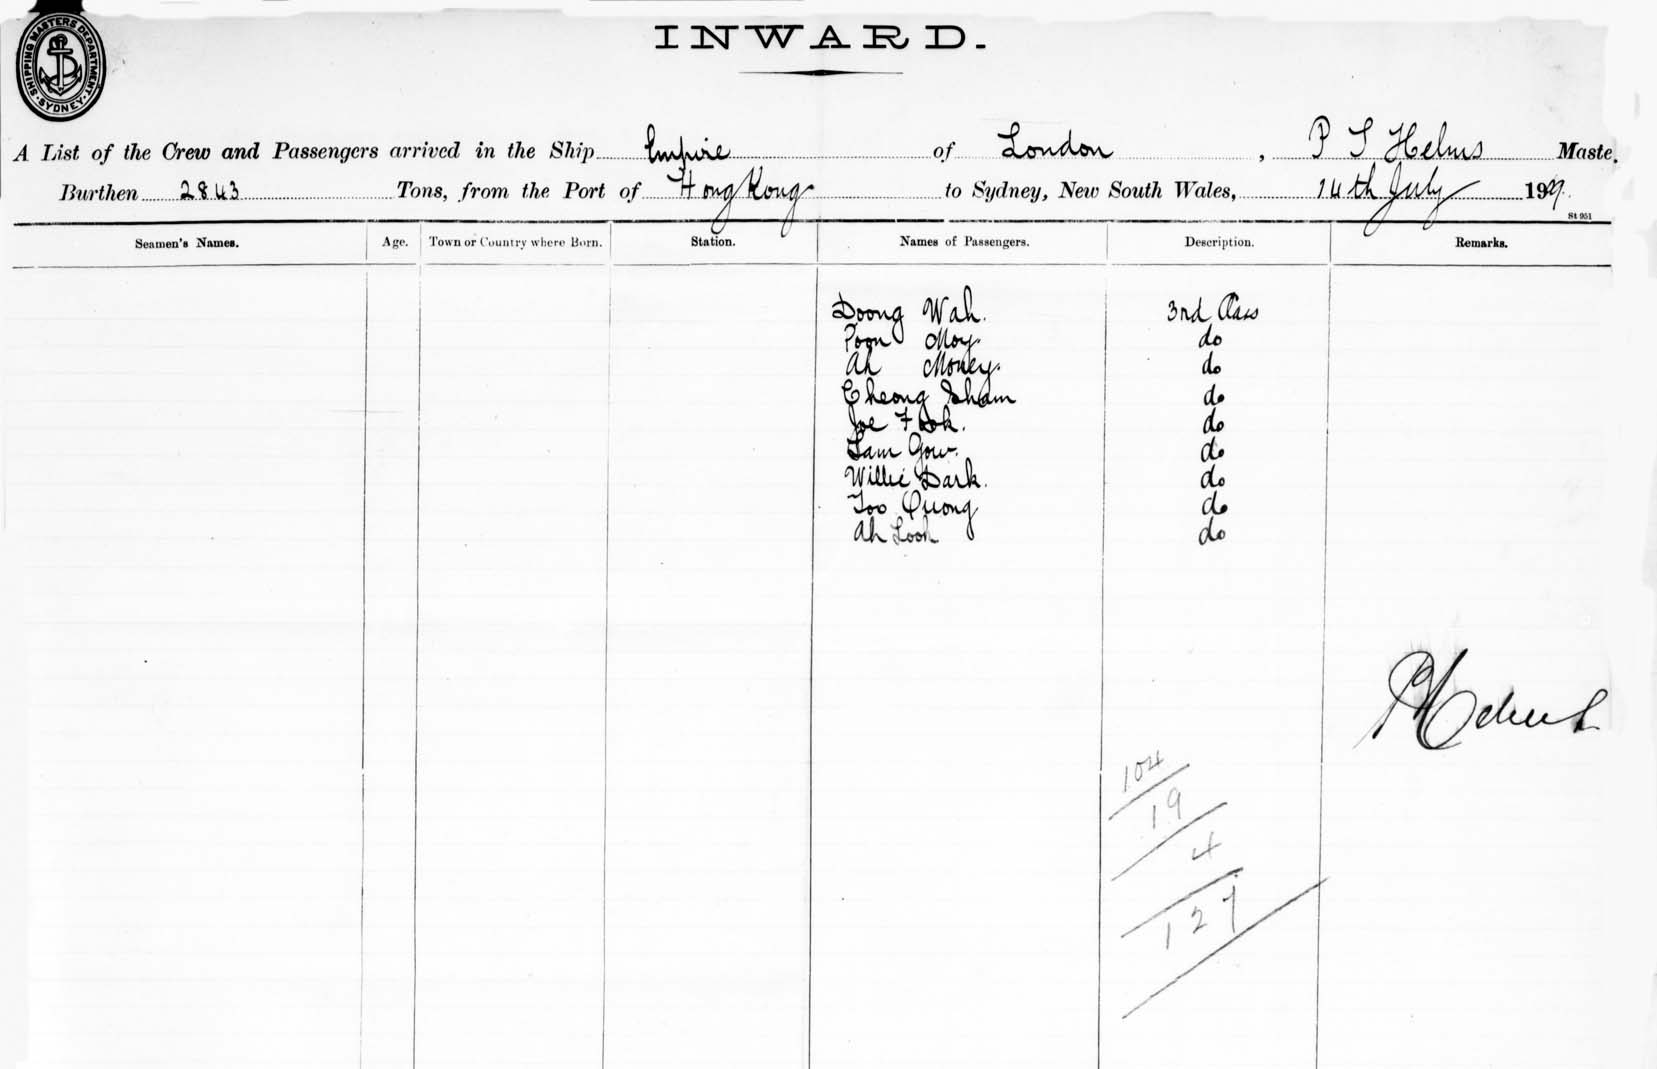 SHIPPING MASTERS DEPARTMENT
SYDNEY
INWARD.
A List of the Crew and Passengers arrived in the Ship Empire of London, P T Helms Maste.
Burthen 2843 Tons, from the Port of Hong Kong to Sydney, New South Wales, 14th July 19
St 951
Seamen's Names. Age. Town or Country where Born. Station. Names of Passengers. Description. Remarks.
Doong Wah. 3rd Class
Poon Moy. do
Ah Money. do
Cheong Sham do
Joe Fook. do
Sam Gow. do
Willie Dark. do
Too Quong do
Ah Look do
P Helms
104
19
4
127